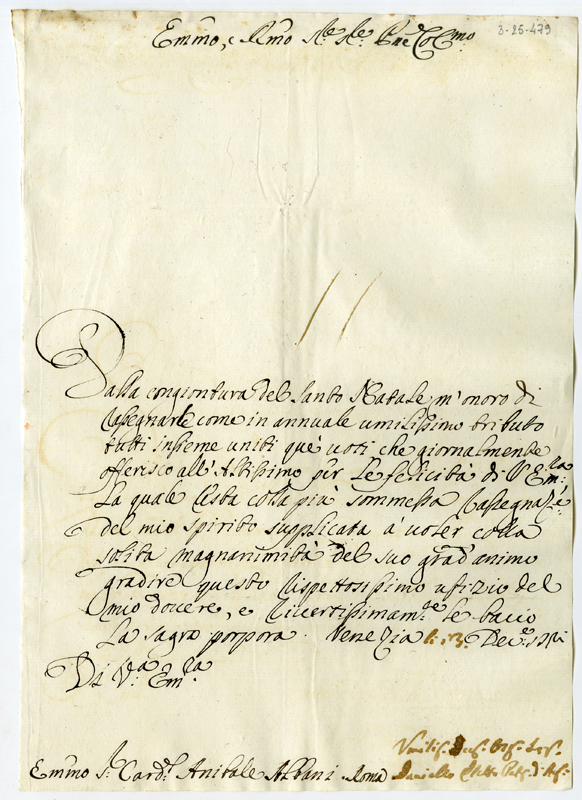 Emmo, e Rmo Sre Sre Pne Colmo
3-25-479
Dalla congiontura del Santo Natale m'onoro di
rassegnarle come in annuale umilissimo tributo
tutti insieme uniti que' voti che giornalmente
offerisco all'Altissimo per le felicità di V. Em:za
La quale resta colla più sommessa rassegnaz:e
del mio spirito supplicata à voler colla
solita magnanimità del suo grad'animo
gradire questo rispettosissimo ufizio del
mio dovere, e riverentissimam:te le bacio
La sagra porpora. Venezia li 13: Dec:e
Di V:a Em:za
Emmo Sr. Card:l Anibale Albani. Roma
Umilis: Deus: Obs: Ser:
Daniello